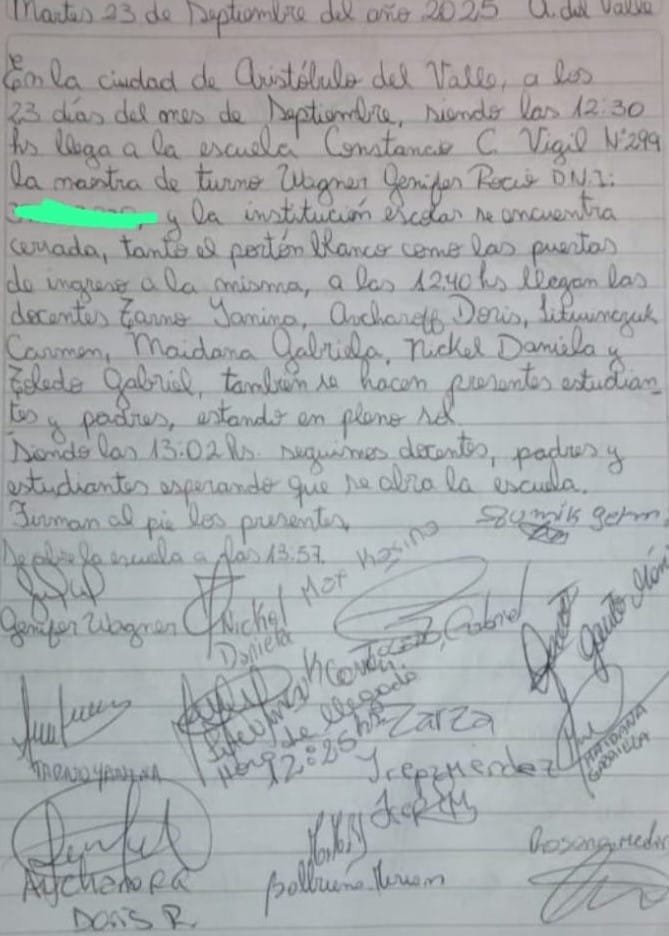 Martes 23 de Septiembre del año 2025 A. del Valle
En la ciudad de Aristóbulo del Valle, a los
23 días del mes de Septiembre, siendo las 12:30
hs llega a la escuela Constancio C. Vigil N°299
la maestra de turno Wagner Genifer Rocio D.N.I:
y la institución escolar se encuentra
cerrada, tanto el portón blanco como las puertas
de ingreso a la misma, a las 12:40 hs llegan las
docentes Tarno Yanina, Archaroff Doris, Lituinczuk
Carmen, Maidana Gabriela, Nickel Daniela y
Toledo Gabriel, también se hacen presentes estudian_
tes y padres, estando en pleno sol
Siendo las 13:02 hs. seguimos docentes, padres y
estudiantes esperando que se abra la escuela.
Firman al pie los presentes,
Se abre la escuela a las 13:57.
Genifer Wagner
Nickel
Daniela
Gabriel
de llegada
12:25 hs
Zarza
MAIDANA
GABRIELA
TARNO YANINA
Doris R.